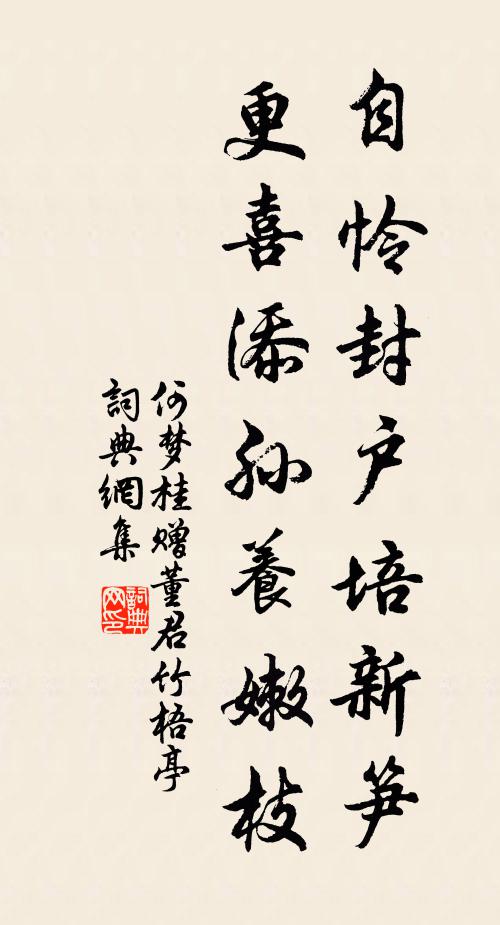 自怜封户培新笋
更喜添孙養嫩枝
何梦桂赠董君竹梧亭
詞典網集
詞典网印